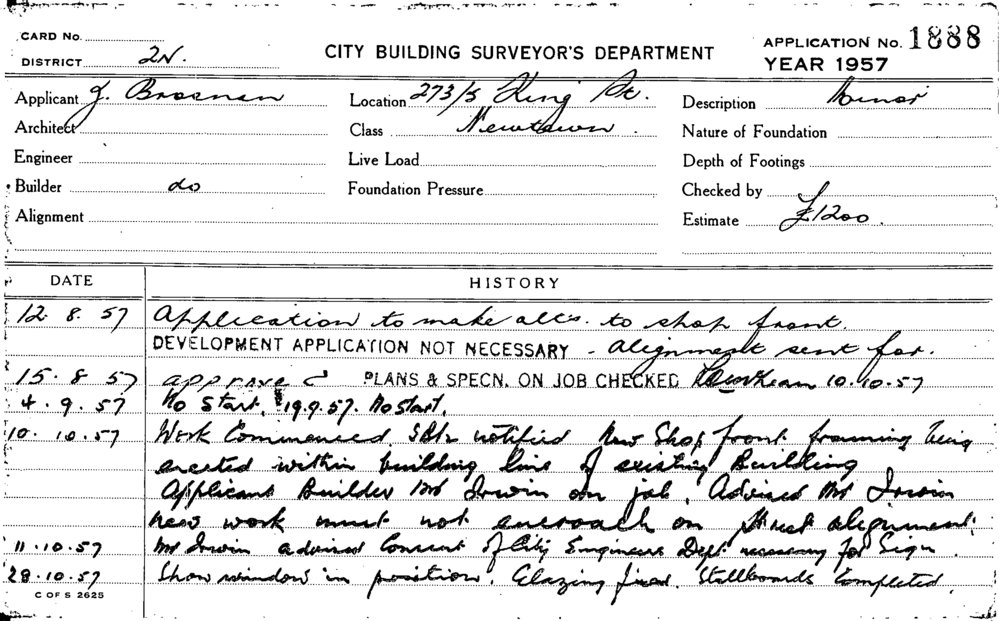 CARD No.
DISTRICT 2N.
CITY BUILDING SURVEYOR'S DEPARTMENT
APPLICATION No. 1888
YEAR 1957
Applicant J. Brosnan
Location 273/5 King St.
Description Minor
Architect
Class Newtown.
Nature of Foundation
Engineer
Live Load
Depth of Footings
Builder do
Foundation Pressure
Checked by
Alignment
Estimate £1200.
DATE HISTORY
12. 8. 57 Application to make altns. to shop front.
DEVELOPMENT APPLICATION NOT NECESSARY - alignment sent for.
15. 8 57 approved PLANS & SPECN. ON JOB CHECKED 10.10.57
4. 9. 57 No Start. 19.9.57. No Start.
10. 10. 57 Work Commenced notified New Shop front framing being
erected within building line of existing Building
Applicant Builder Mr Irwin on job. Advised Mr Irwin
new work must not encroach on street alignment.
11. 10. 57 Mr Irwin advised Consent of City Engineers Dept necessary for Sign.
28. 10. 57 Show window in position. Glazing fixed. Stallboards Completed.
C OF S 2625